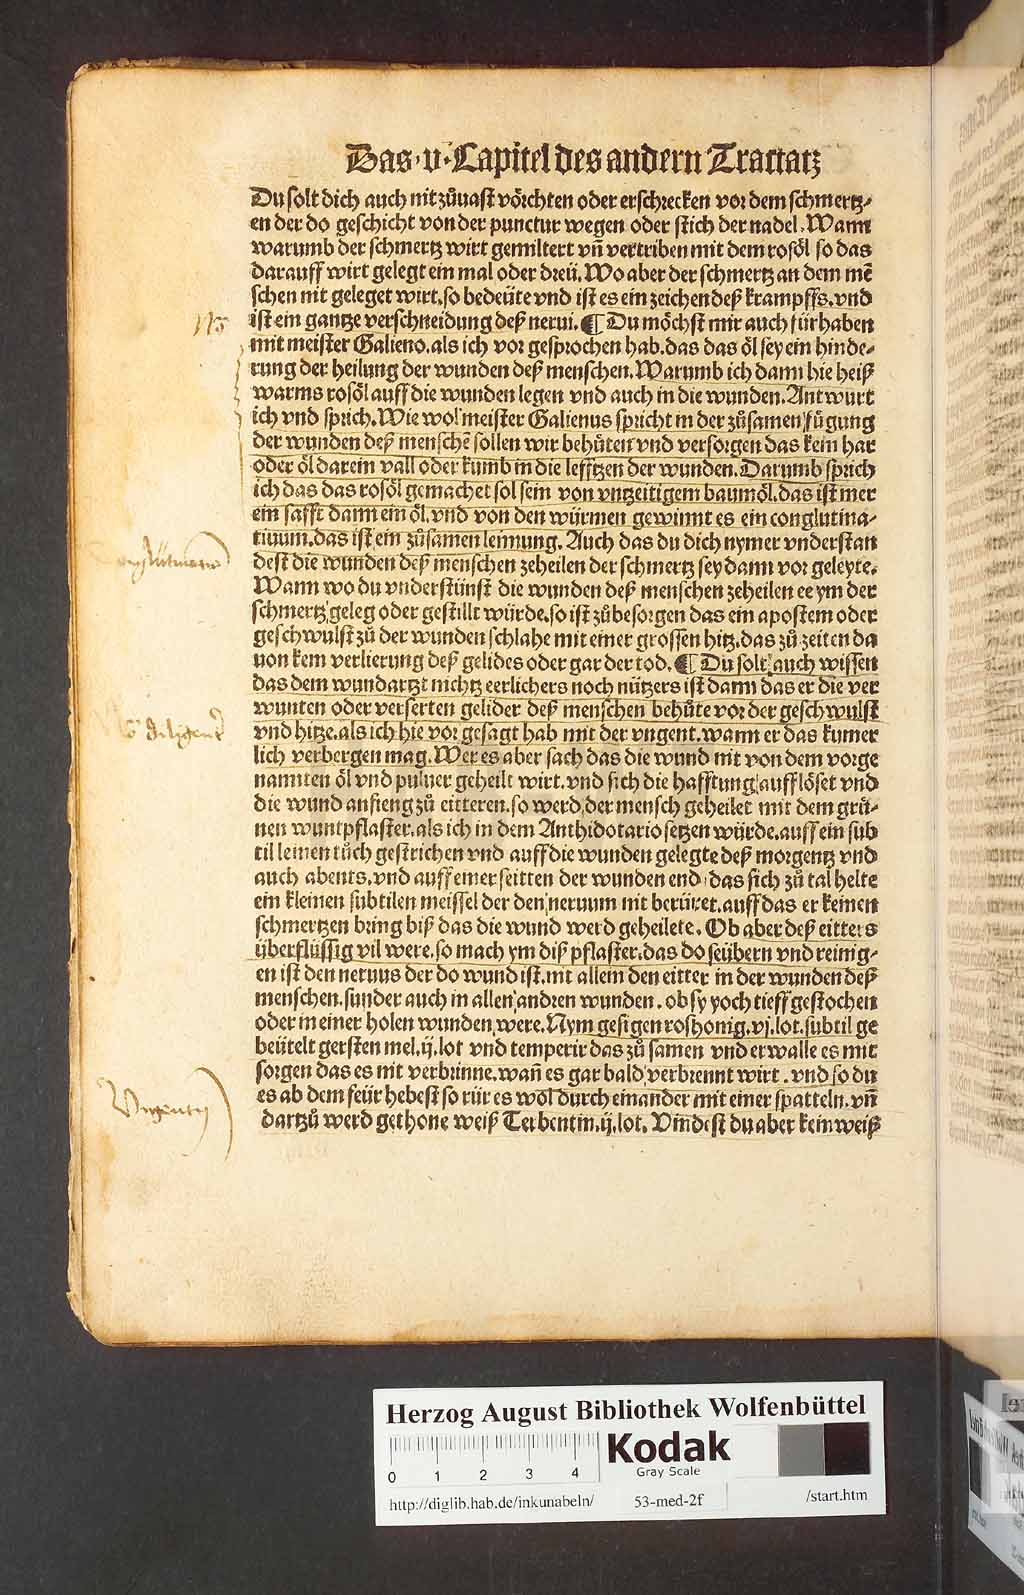 Das·v·Capitel des andern Tractatz
Du solt dich auch nit zůuast vörchten oder erschrecken vor dem schmertz-
en der do geschicht von der punctur wegen oder stich der nadel. Wann
warumb der schmertz wirt gemiltert vn̄ vertriben mit dem rosöl so das
darauff wirt gelegt ein mal oder dreü. Wo aber der schmertz an dem mē
schen nit geleget wirt. so bedeüte vnd ist es ein zeichen deß krampffs. vnd
ist ein gantze verschneidung deß nerui. ¶ Du möchst mir auch fürhaben
mit meister Galieno. als ich vor gesprochen hab. das das öl sey ein hinde-
rung der heilung der wunden deß menschen. Warumb ich dann hie heiß
warms rosöl auff die wunden legen vnd auch in die wunden. Antwurt
ich vnd sprich. Wie wol meister Galienus spricht in der zůsamen fůgung
der wunden deß menschē sollen wir behůten vnd versorgen das kein har
oder öl darein vall oder kumb in die lefftzen der wunden. Darumb sprich
ich das das rosöl gemachet sol sein von vntzeitigem baumöl. das ist mer
ein safft dann ein öl. vnd von den würmen gewinnt es ein conglutina-
tiuum. das ist ein zůsamen leimung. Auch das du dich nymer vnderstan
dest die wunden deß menschen zeheilen der schmertz sey dann vor geleyte.
Wann wo du vnderstünst die wunden deß menschen zeheilen ee ym der
schmertz geleg oder gestillt würde. so ist zů besorgen das ein apostem oder
geschwulst zů der wunden schlahe mit einer grossen hitz. das zů zeiten da
uon kem verlierung deß gelides oder gar der tod. ¶ Du solt auch wissen
das dem wundartzt nichtz eerlichers noch nützers ist dann das er die ver
wunten oder verserten gelider deß menschen behůte vor der geschwulst
vnd hitze. als ich hie vor gesagt hab mit der vngent. wann er das kumer
lich verbergen mag. Wer es aber sach das die wund nit von dem vorge
nannten öl vnd puluer geheilt wirt. vnd sich die hafftung auff löset vnd
die wund anfieng zů eitteren. so werd der mensch geheilet mit dem grů-
nen wuntpflaster. als ich in dem Anthidotario setzen würde. auff ein sub
til leinen tůch gestrichen vnd auff die wunden gelegte deß morgentz vnd
auch abents. vnd auff einer seitten der wunden end das sich zů tal helte
ein kleinen subtilen meissel der den neruum nit berüret. auff das er keinen
schmertzen bring biß das die wund werd geheilete. Ob aber deß eitters
überflüssig vil were. so mach ym diß pflaster. das do seübern vnd reinig-
en ist den neruus der do wund ist. nit allein den eitter in der wunden deß
menschen. sunder auch in allen andren wunden. ob sy yoch tieff gestochen
oder in einer holen wunden were. Nym gesigen roshonig. vj. lot. subtil ge
beütelt gersten mel. ij. lot vnd temperir das zů samen vnd erwalle es mit
sorgen das es nit verbrinne. wan̄ es gar bald verbrennt wirt. vnd so du
es ab dem feür hebest so rür es wol durch einander mit einer spatteln. vn̄
dartzů werd gethone weiß Terbentin. ij. lot. Vindest du aber kein weiß
Herzog August Bibliothek Wolfenbüttel
0 1 2 3 4
Kodak
Gray Scale
http://diglib.hab.de/inkunabeln/ 53-med-2f /start.htm